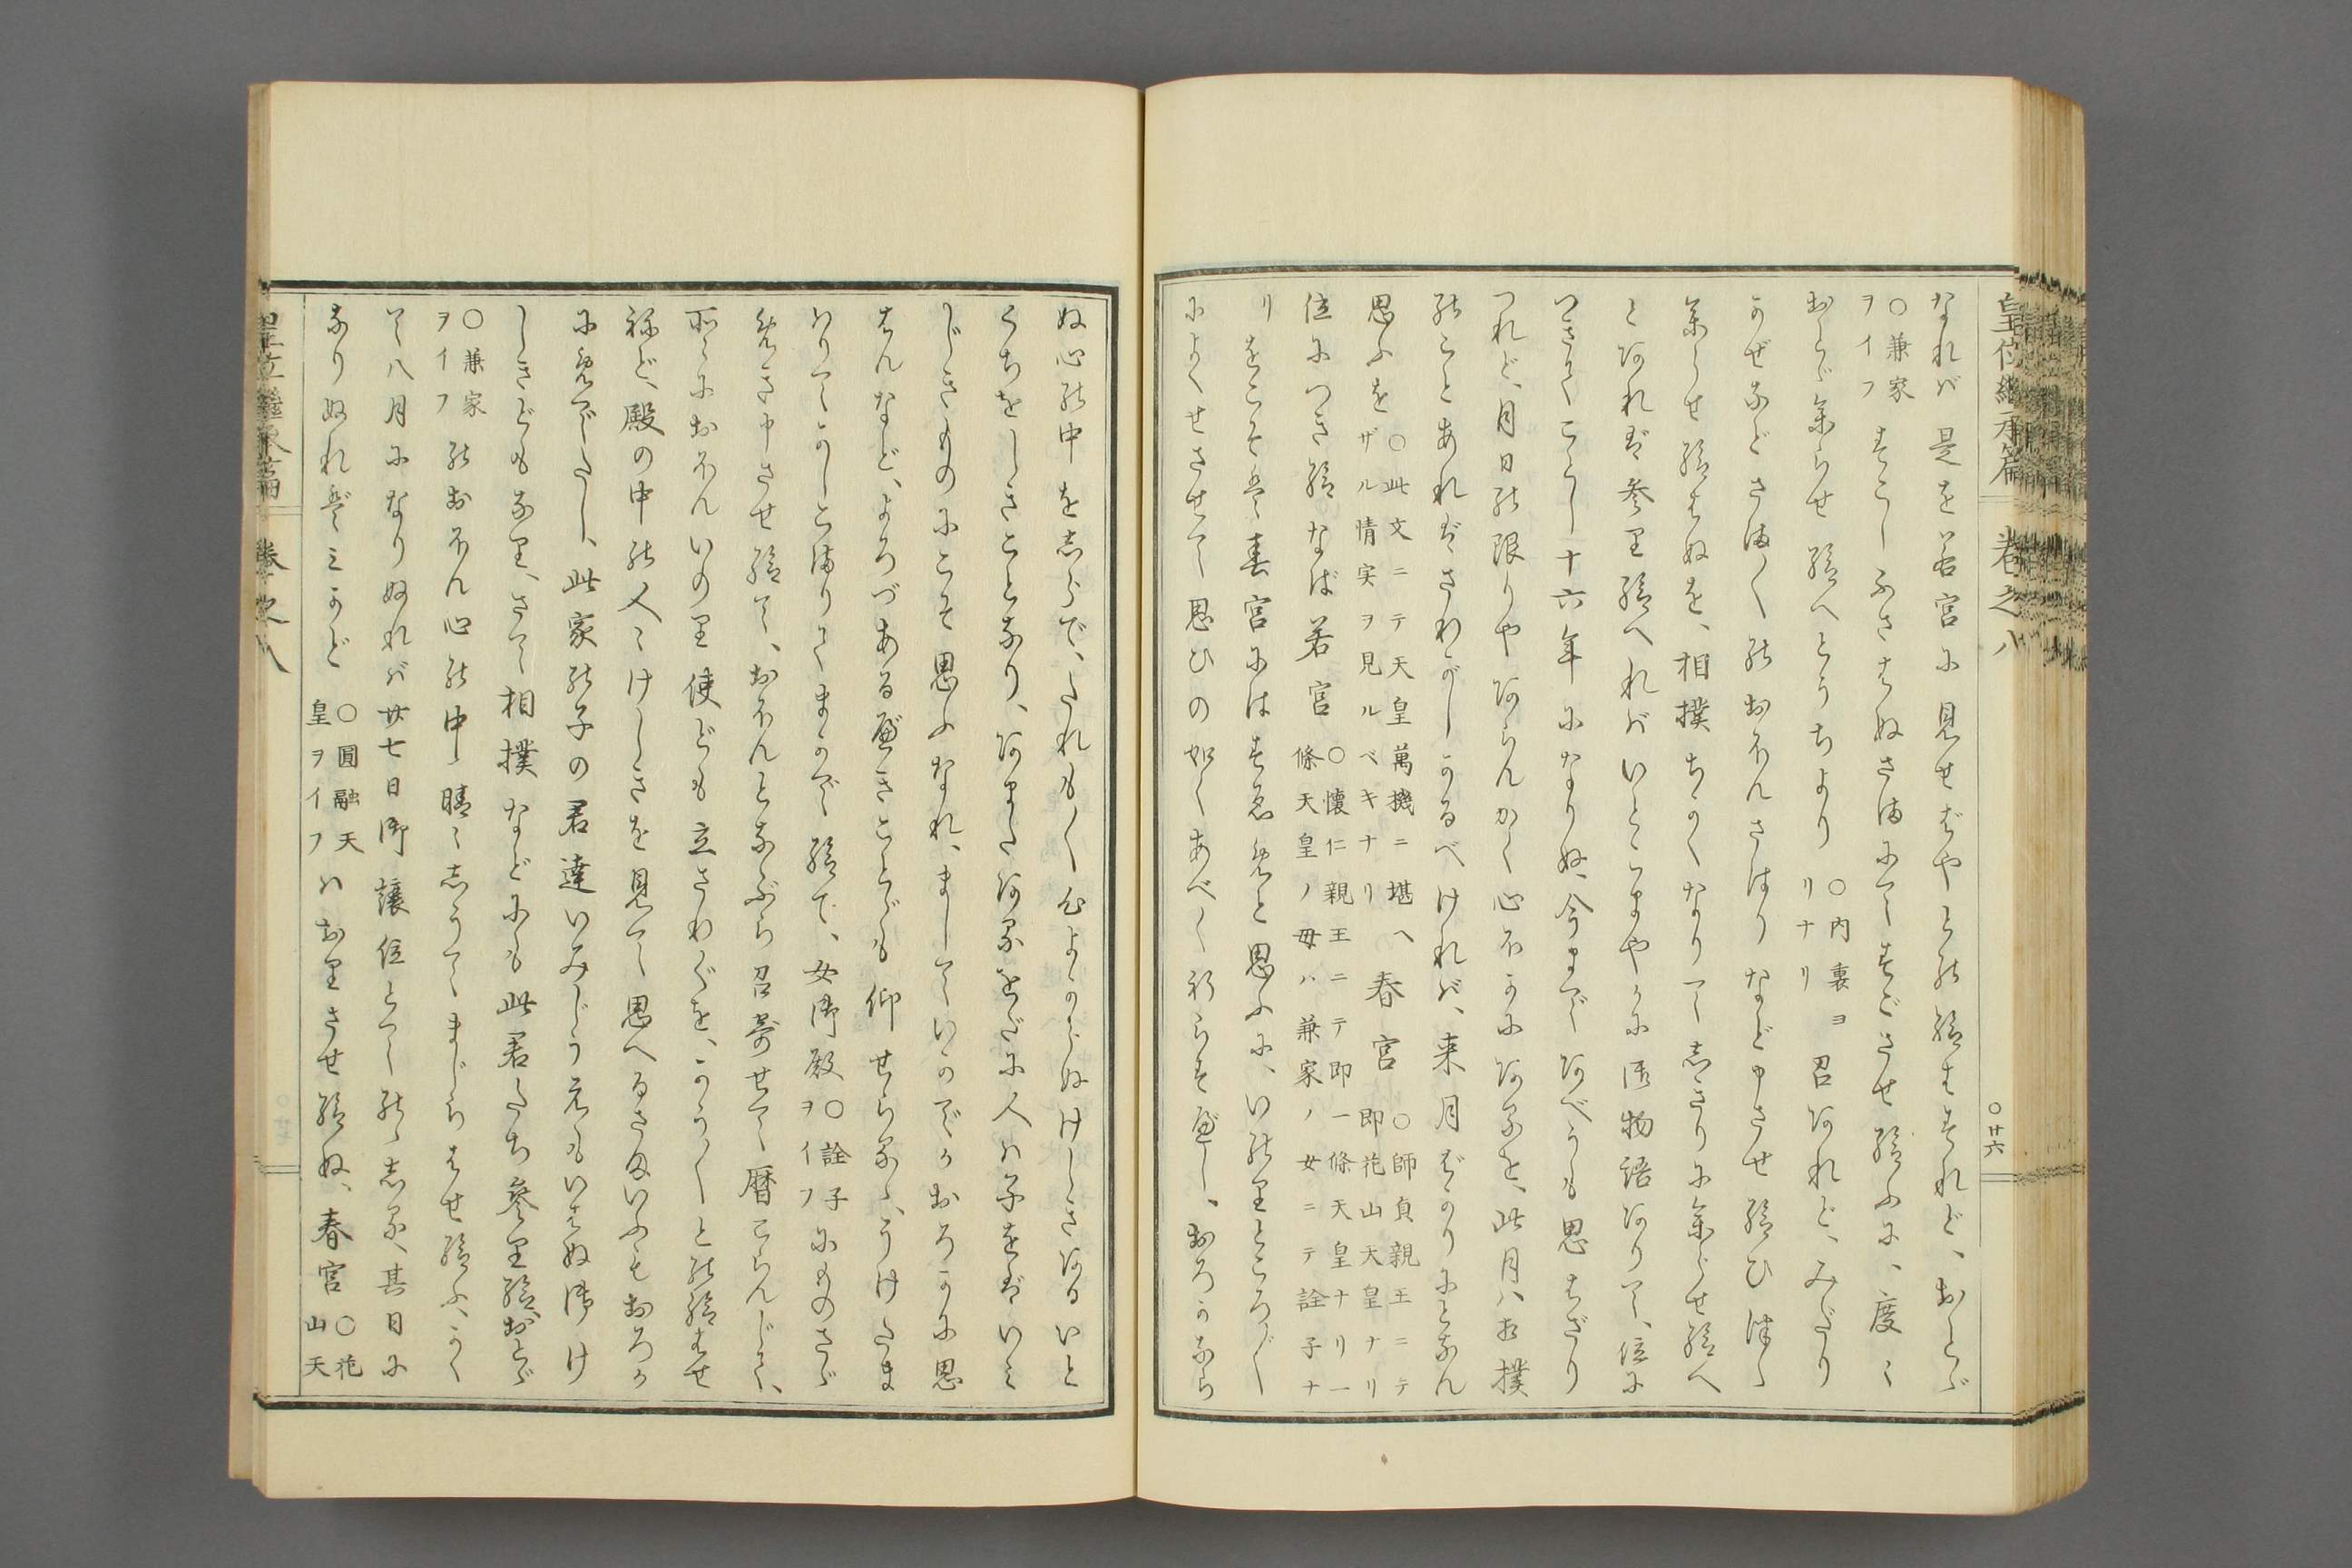 皇位繼承篇 卷之八 ○廿六
なれバ是を若宮に見せばやとの給はすれど、おとゞ
○兼家ヲイフ すこしふさはぬさまにてすごさせ給ふに、度々
おとゞ參らせ給へとうちより ○内裏ヨリナリ 召あれど、みだり
かぜなどさま〴〵のおほんさはりなど申させ給ひつゝ
參らせ給はぬを、相撲ちかくなりてしきりに參らせ給へ
とあれば參り給へれバいとこまやかに御物語ありて、位に
つきてことし十六年になりぬ、今まであべうも思はざり
つれど、月日の限りやあらんかく心ほかにあるを、此月ハ相撲
のことあればさわがしかるべければ、来月ばかりにとなん
思ふを ○此文ニテ天皇萬機ニ堪ヘザル情実ヲ見ルベキナリ 春宮 ○師貞親王ニテ即花山天皇ナリ
位につき給なば若宮 ○懷仁親王ニテ即一條天皇ナリ一條天皇ノ母ハ兼家ノ女ニテ詮子ナ
リ をこそは春宮にはすゑめと思ふに、いのりところ〴〵
によくせさせて思ひの如くあべく祈らすべし、おろかなら
ぬ心の中をしらで、たれも〳〵心よからぬけしきあるいと
くちをしきことなり、あまたあるをだに人ハ子をばいみ
じきものにこそ思ふなれ、ましていかでかおろかに思
はんなど、よろづあるべきことゞも仰せらるゝ、うけたま
ハりてかしこまりてまかで給て、女御殿 ○詮子ヲイフ にものさゞ
めき申させ給て、おほんとなぶら召寄せて暦ごらんじて、
所々におほんいのり使ども立さわぐを、かう〳〵との給はせ
ねど、殿の中の人々けしきを見て思へるさまいふもおろか
にめでたし、此家の子の君達いみじうえもいはぬ御け
しきどもなり、さて相撲などにも此君たち參り給、おとゞ
○兼家ヲイフ のおほん心の中晴々しうてまじらはせ給ふ、かく
て八月になりぬれバ廿七日御讓位とてのゝしる、其日に
なりぬればみかど ○圓融天皇ヲイフ ハおりさせ給ぬ、春宮 ○花山天
皇位繼承篇 卷之八